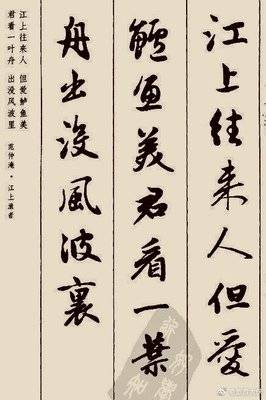 江上往来人但愛
鱸魚美君看一葉
舟出没風波裏
江上往来人 但爱鲈鱼美
君看一叶舟 出没风波里
范仲淹·江上渔者